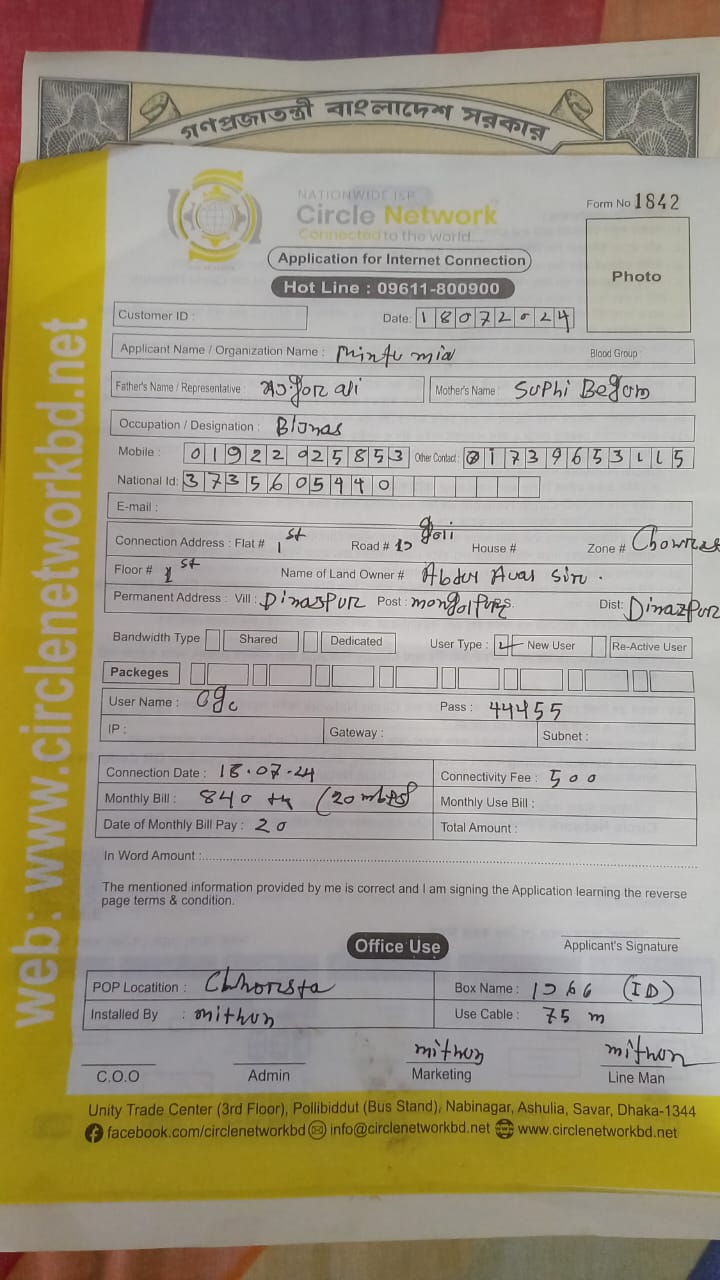 গণপ্রজাতন্ত্রী বাংলাদেশ সরকার
NATIONWIDE ISP
Circle Network
Connected to the world...
Form No 1842
Application for Internet Connection
Hot Line : 09611-800900
Photo
Customer ID :
Date: 18072024
Applicant Name / Organization Name : Mintu mia Blood Group
Father's Name / Representative : ali Mother's Name : Suphi Begom
Occupation / Designation :
Mobile : 01922925853 Other Contact : 01739653115
National Id: 3735605440
E-mail :
Connection Address : Flat # 1st Road # 10 goli House # Zone #
Floor # 1st Name of Land Owner # Abdur
Permanent Address : Vill : Dinazpur Post : Dist: Dinazpur
Bandwidth Type Shared Dedicated User Type : New User Re-Active User
Packeges
User Name : Pass : 44455
IP : Gateway : Subnet :
Connection Date : 18.07.24 Connectivity Fee : 500
Monthly Bill : 840 tk (20 mbps) Monthly Use Bill :
Date of Monthly Bill Pay : 20 Total Amount :
In Word Amount :
The mentioned information provided by me is correct and I am signing the Application learning the reverse
page terms & condition.
Office Use
Applicant's Signature
POP Locatition : Box Name : (ID)
Installed By : mithun Use Cable : 75 m
mithun mithun
C.O.O Admin Marketing Line Man
Unity Trade Center (3rd Floor), Pollibiddut (Bus Stand), Nabinagar, Ashulia, Savar, Dhaka-1344
facebook.com/circlenetworkbd info@circlenetworkbd.net www.circlenetworkbd.net
web: www.circlenetworkbd.net